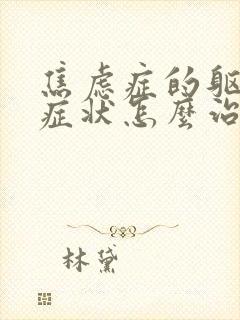 焦虑症的躯
症状怎麼治
林黛